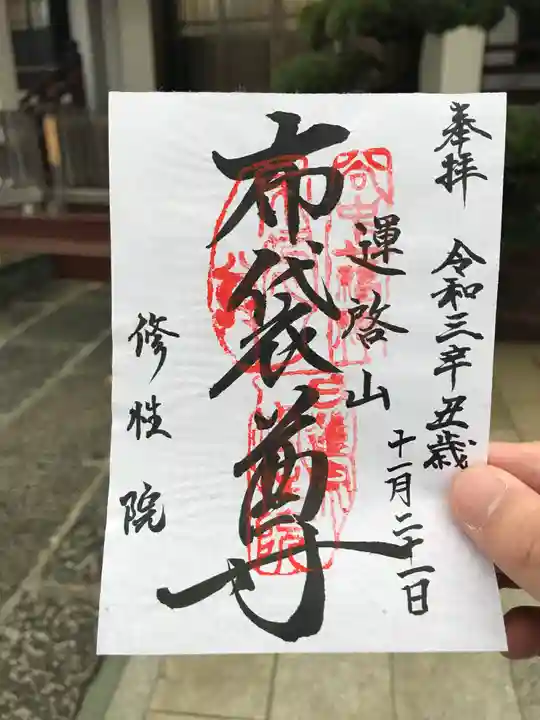 奉拝 令和三辛丑歳
十一月二十一日
運啓山
布袋尊
修性院